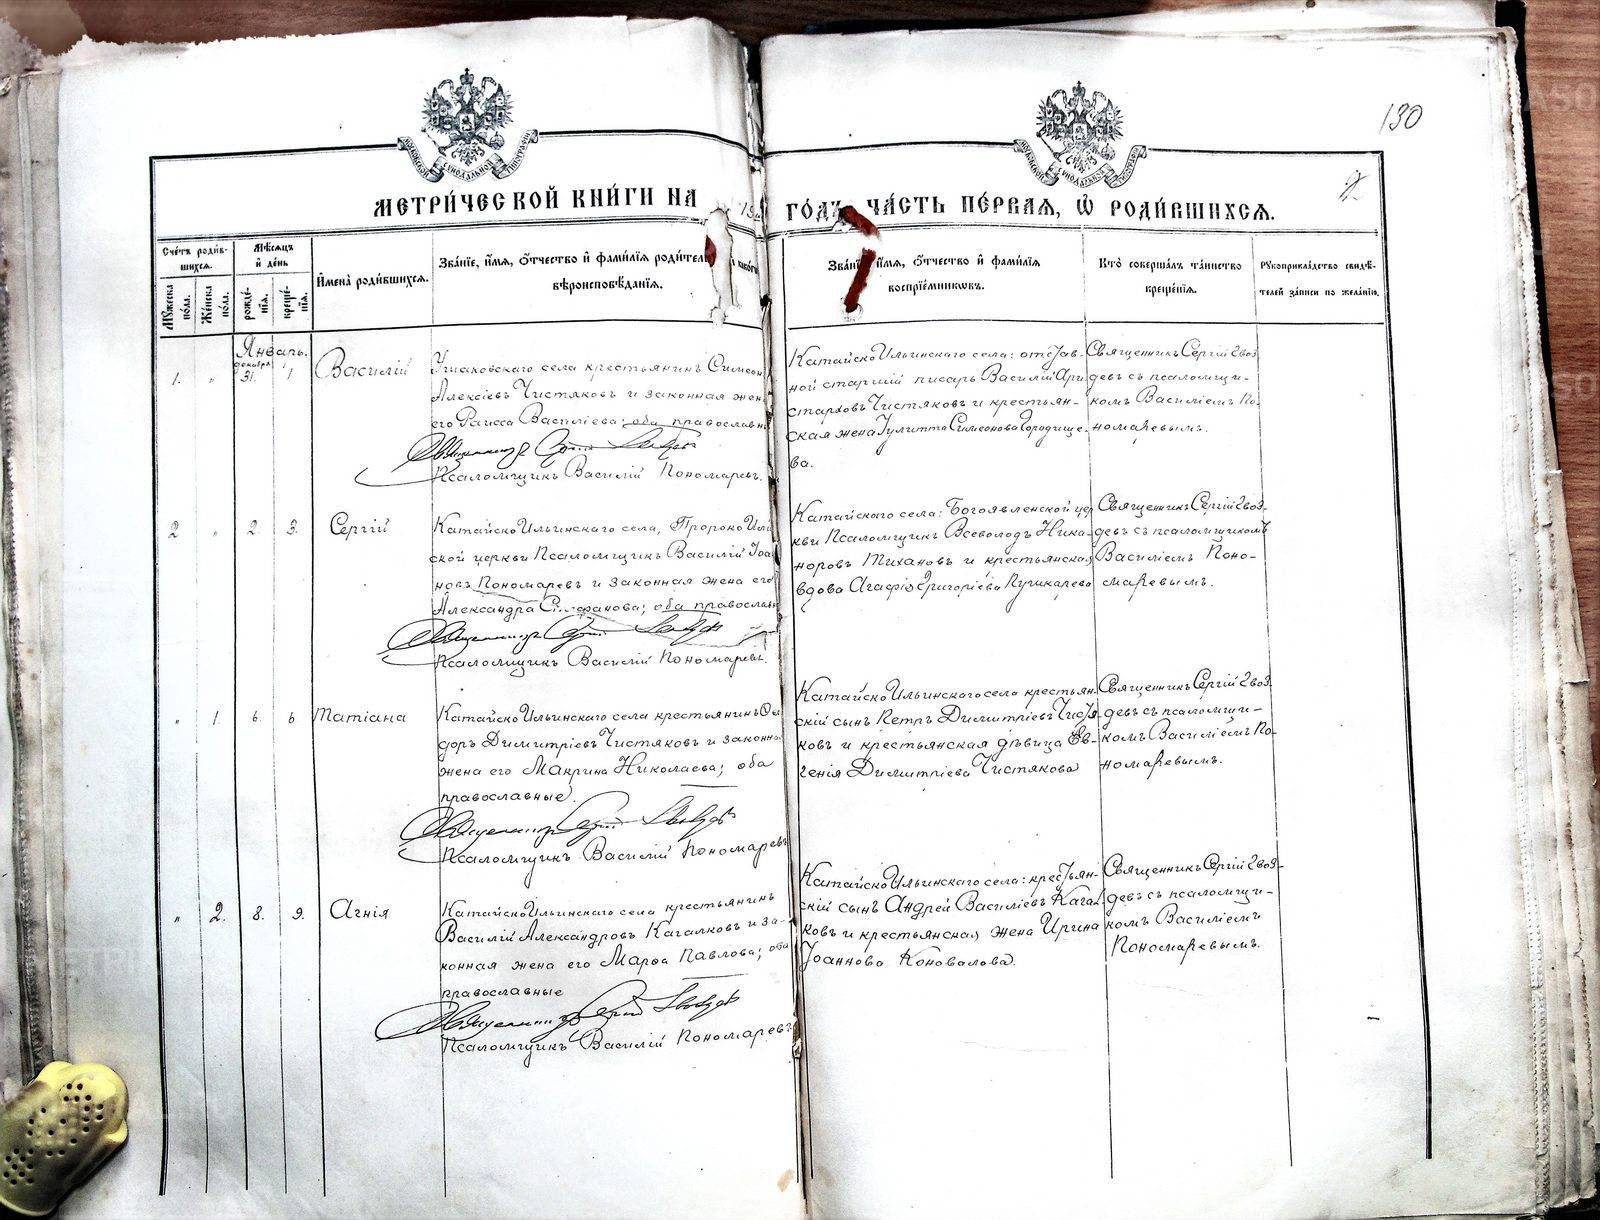 130
2
МЕТРИ́ЧЕСКОЙ КНИ́ГИ НА
ГО́ДЪ ЧА́СТЬ ПЕ́РВАЯ, Ѡ РОДИ́ВШИХСЯ.
Сче́тъ роди́в-
шихся.
Мѣ́сяцъ
и́ де́нь
Му́жеска
по́ла.
Же́нска
по́ла.
рожде́-
нія.
креще́-
нія.
И́мена̀ роди́вшихся.
Зва́ніе, и́мя, ѻ́тчество и́ фами́лія роди́тел
вѣроисповѣ́данія.
Зва́ніе и́мя, ѻ́тчество и́ фами́лія
воспріе́мниковъ.
Кто̀ соверша́лъ та́инство
креще́нія.
Рукоприкла́дство свидѣ́-
телей за́писи по жела́нію.
Январь.
1. „ декабря 31. 1 Василій
Ушаковскаго села крестьянинъ Симеон
Алексіевъ Чистяковъ и законная жен
его Раиса Василіева; оба православн
Священникъ Сергій Гвоздевъ
Псаломщикъ Василій Пономаревъ.
КатайскоИльинскаго села: отстав-
ной старшій писарь Василій Ари
старховъ Чистяковъ и крестьян-
ская жена Іулитта Симеонова Городище-
ва.
Священникъ Сергій Гвоз
девъ съ псаломщи-
комъ Василіемъ По-
номаревымъ.
2 „ 2. 3. Сергій
КатайскоИльинскаго села, ПророкоИльи
ской церкви Псаломщикъ Василій Іоа
новъ Пономаревъ и законная жена его
Александра Стефанова; оба православн
Священникъ Сергій Гвоздевъ
Псаломщикъ Василій Пономаревъ.
Катайскаго села: Богоявленской цер
кви Псаломщикъ Всеволодъ Ника-
норовъ Тихановъ и крестьянская
вдова Агафія Григоріева Пушкарева
Священникъ Сергій Гвоз-
девъ съ псаломщикомъ
Василіемъ Поно-
маревымъ.
„ 1. 6. 6 Татіана
КатайскоИльинскаго села крестьянинъ Ѳео
доръ Димитріевъ Чистяковъ и законная
жена его Макрина Николаева; оба
православные.
Священникъ Сергій Гвоздевъ
Псаломщикъ Василій Пономаревъ
КатайскоИльинскаго села крестьян-
скій сынъ Петръ Димитріевъ Чистя-
ковъ и крестьянская дѣвица Ев-
генія Димитріева Чистякова
Священникъ Сергій Гвоз-
девъ съ псаломщи-
комъ Василіемъ По-
номаревымъ.
„ 2. 8. 9. Агнія
КатайскоИльинскаго села крестьянинъ
Василій Александровъ Кагалковъ и за-
конная жена его Марѳа Павлова; оба
православные
Священникъ Сергій Гвоздевъ
Псаломщикъ Василій Пономаревъ
КатайскоИльинскаго села: крестьян-
скій сынъ Андрей Василіевъ Кагал
ковъ и крестьянская жена Ирина
Іоаннова Коновалова.
Священникъ Сергій Гвоз-
девъ съ псаломщи-
комъ Василіемъ
Пономаревымъ.